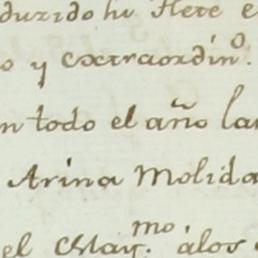 ducido su flete e
o y extraordin.º
n todo el año la
Arina Molida
el May.mo álos